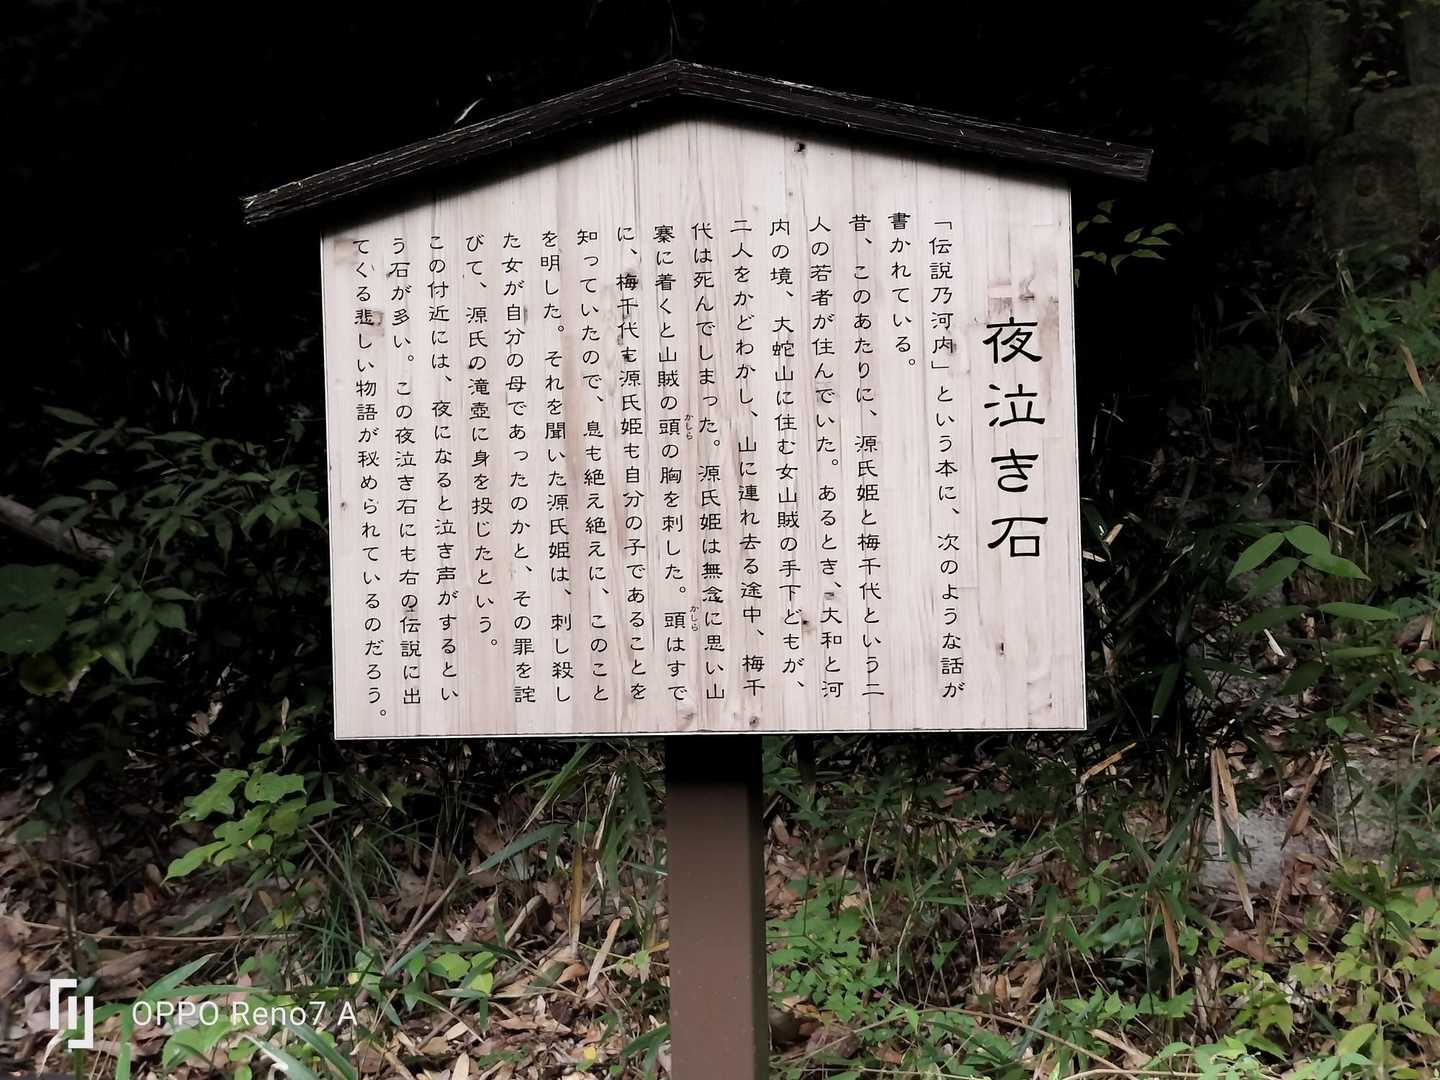 夜泣き石
「伝説乃河内」という本に、次のような話が
書かれている。
昔、このあたりに、源氏姫と梅千代という二
人の若者が住んでいた。あるとき、大和と河
内の境、大蛇山に住む女山賊の手下どもが、
二人をかどわかし、山に連れ去る途中、梅千
代は死んでしまった。源氏姫は無念に思い山
寨に着くと山賊の頭の胸を刺した。頭はすで
かしら
かしら
に、梅千代も源氏姫も自分の子であることを
知っていたので、息も絶え絶えに、このこと
を明した。それを聞いた源氏姫は、刺し殺し
た女が自分の母であったのかと、その罪を詫
びて、源氏の滝壺に身を投じたという。
この付近には、夜になると泣き声がするとい
う石が多い。この夜泣き石にも右の伝説に出
てくる悲しい物語が秘められているのだろう。
OPPO Reno7 A